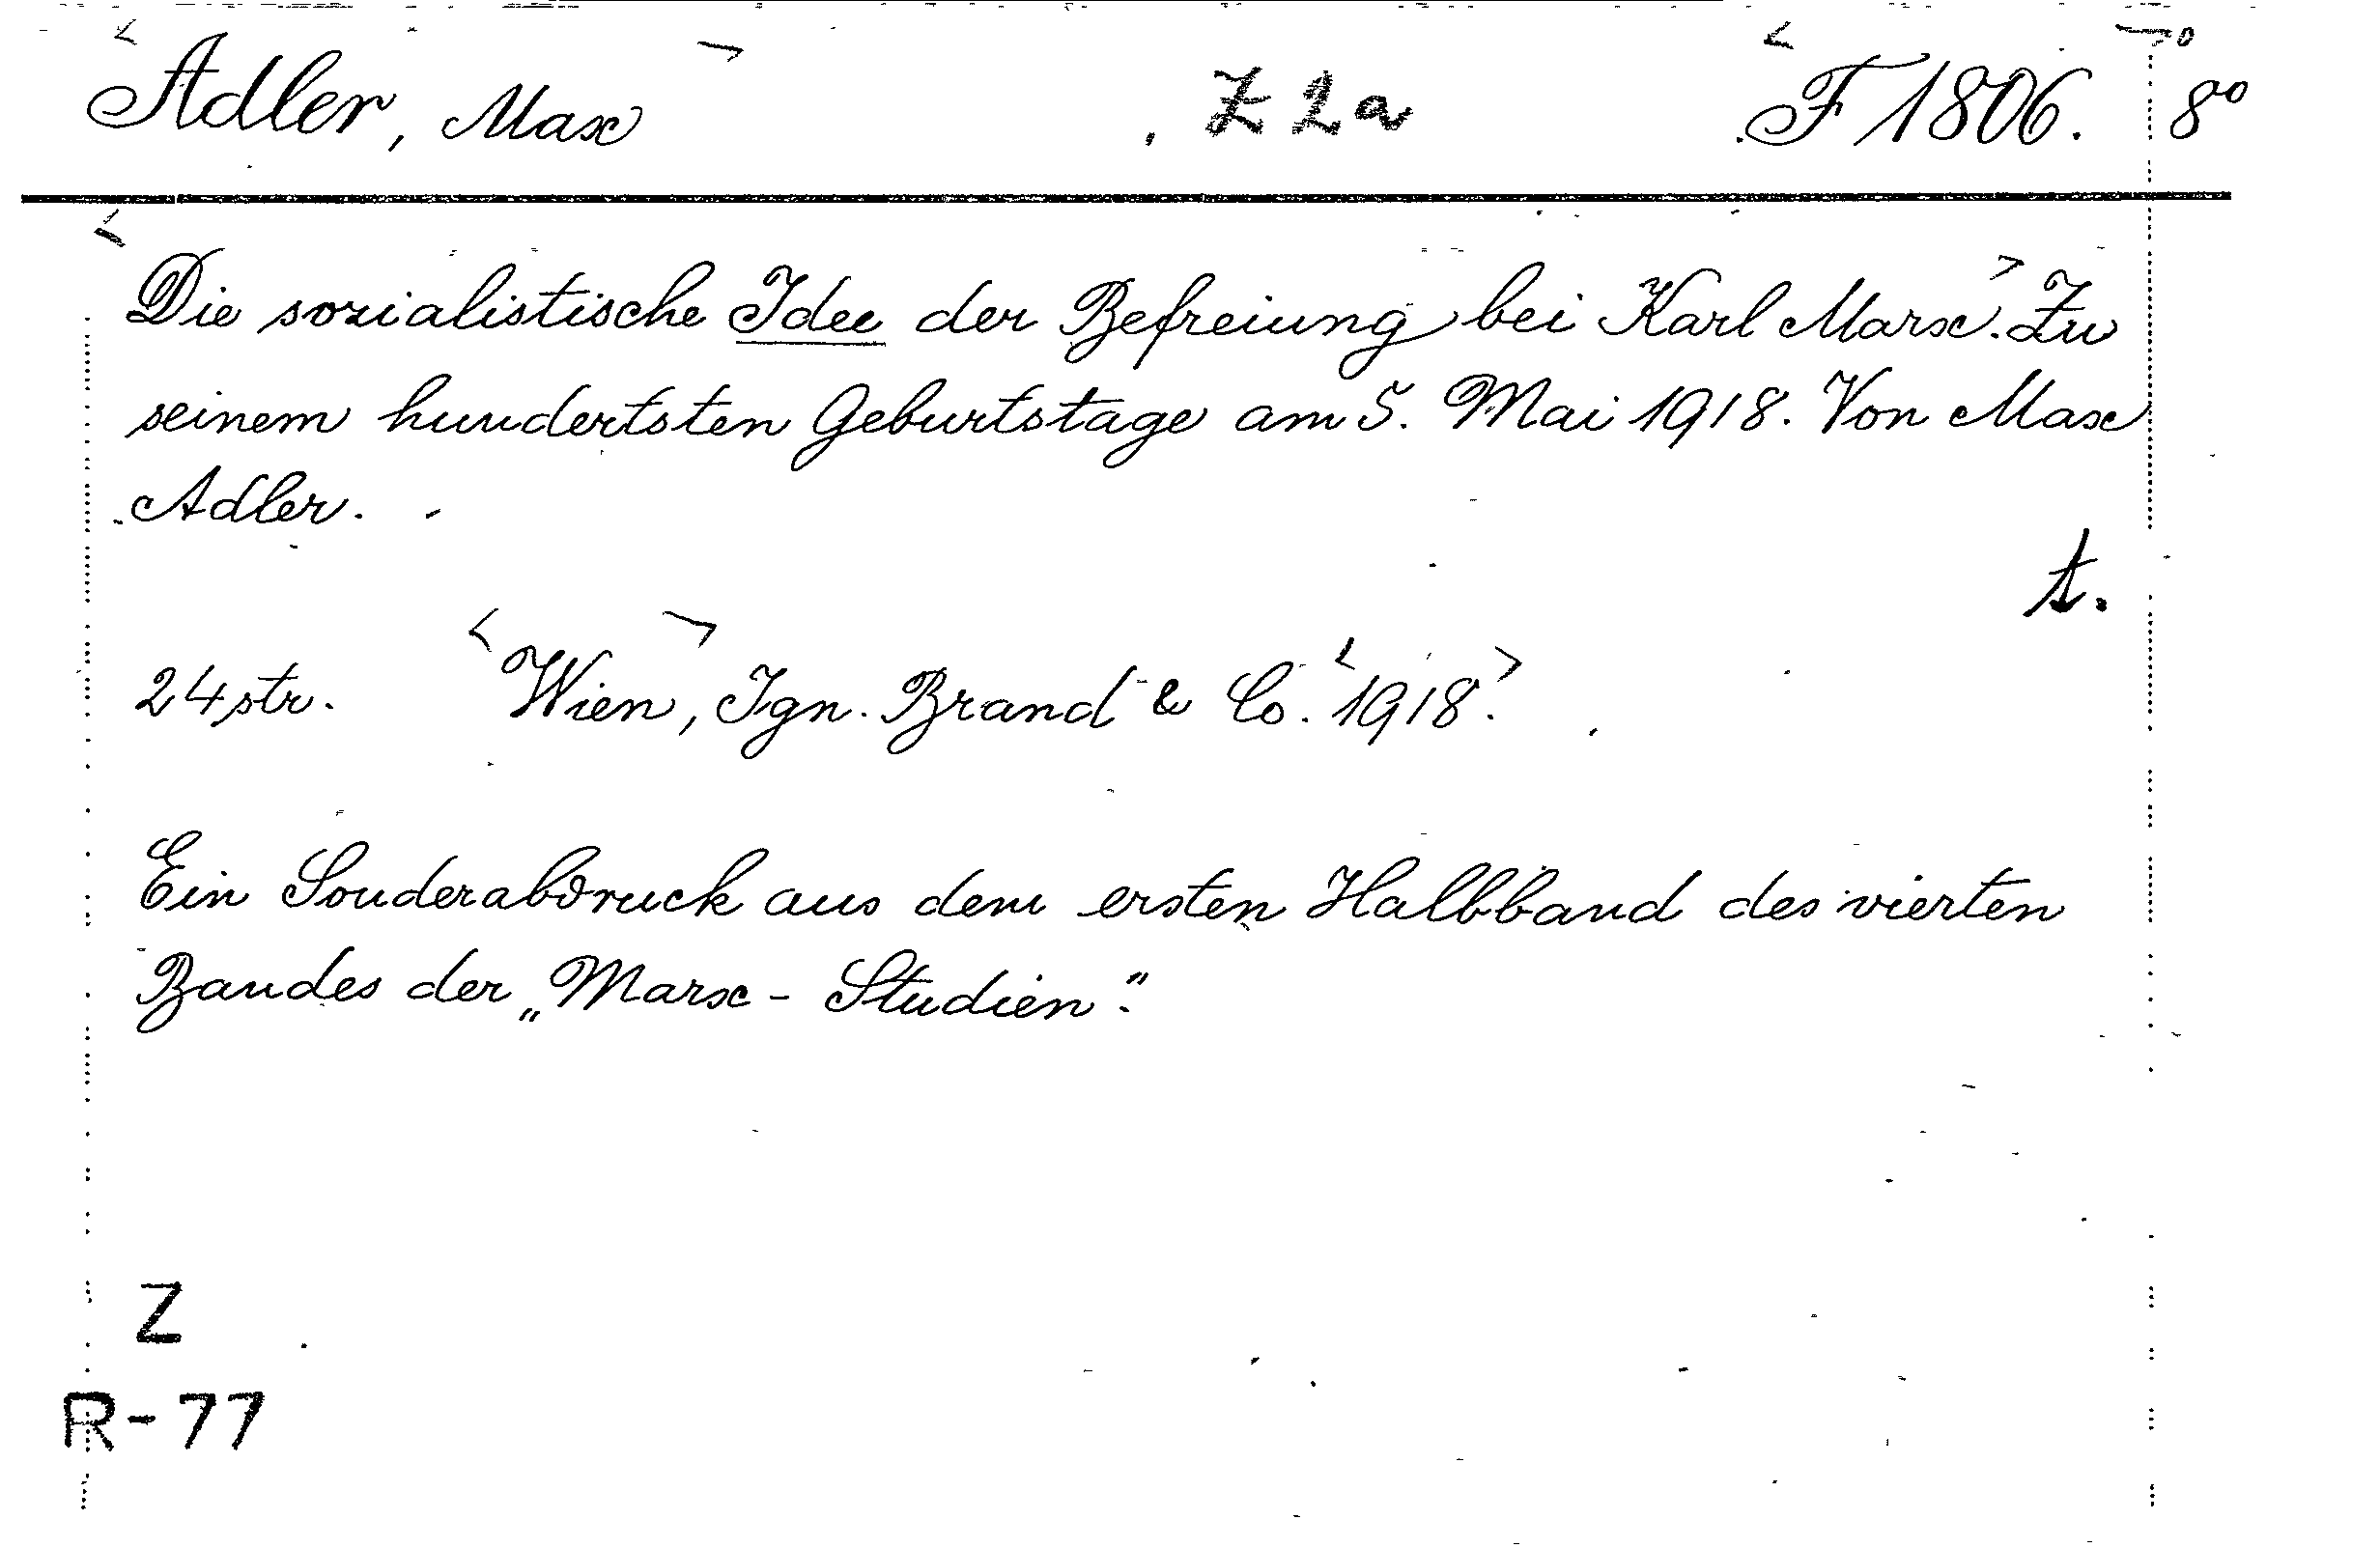 Adler, Max Z 2a F 1806. 8°
Die sozialistische Idee der Befreiung bei Karl Marx. Zu
seinem hundertsten Geburtstage am 5. Mai 1918. Von Max
Adler.
t.
24 str. Wien, Ign. Brand & Co. 1918.
Ein Sonderabdruck aus dem ersten Halbband des vierten
Bandes der „Marx-Studien".
Z
R-77